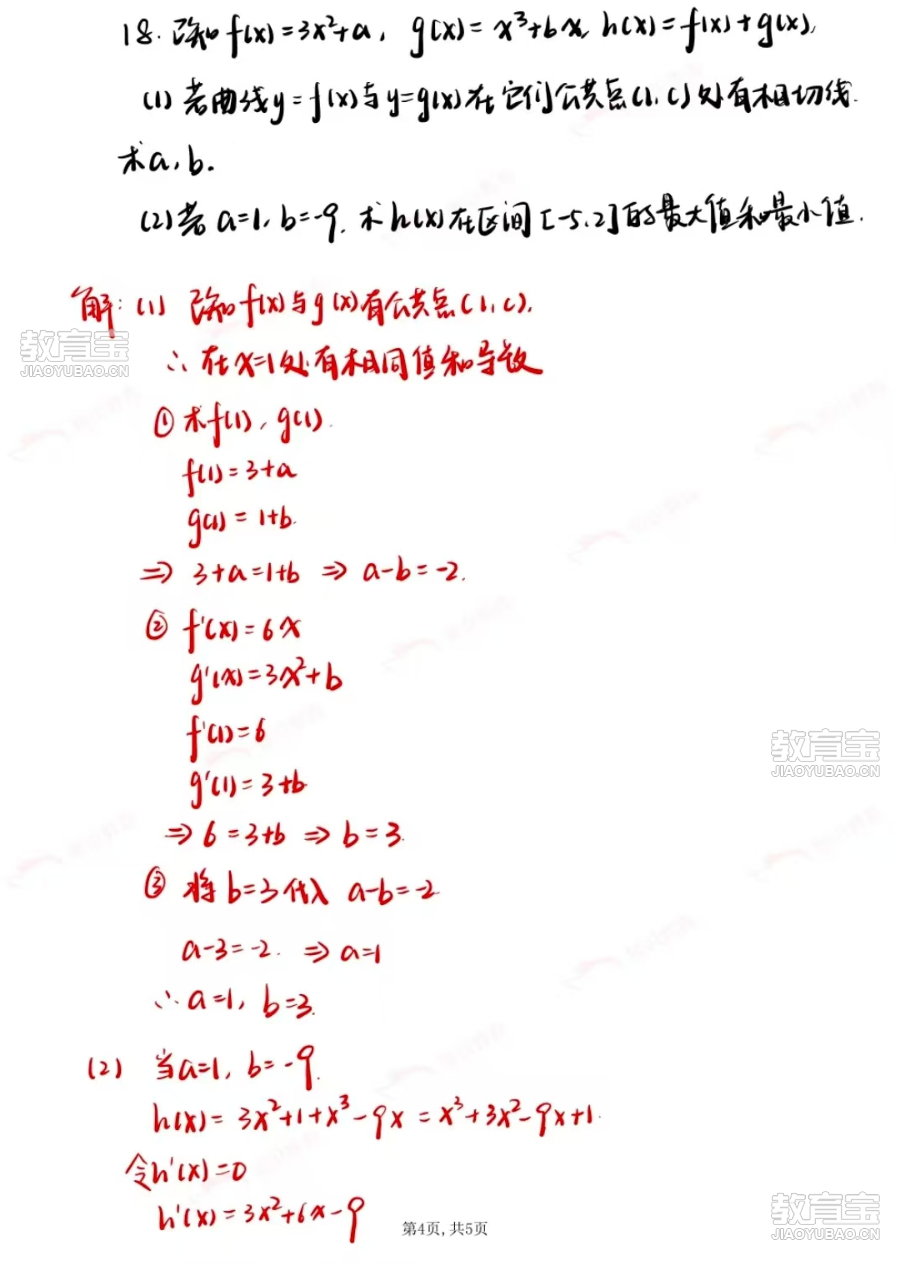 18. 已知f(x)=3x²+a, g(x)=x³+bx, h(x)=f(x)+g(x),
(1) 若曲线y=f(x)与y=g(x)在它们公共点(1,c)处有相切线.
求a,b.
(2)若 a=1, b=-9. 求h(x)在区间[-5,2]的最大值和最小值.
解: (1) 已知f(x)与g(x)有公共点(1,c).
∴在x=1处有相同值和导数
① 求f(1), g(1).
f(1)=3+a
g(1)=1+b.
⇒ 3+a=1+b ⇒ a-b=-2.
② f'(x)=6x
g'(x)=3x²+b
f'(1)=6
g'(1)=3+b
⇒ 6=3+b ⇒ b=3.
③ 将b=3代入 a-b=-2
a-3=-2. ⇒ a=1
∴a=1, b=3.
(2) 当a=1, b=-9.
h(x)=3x²+1+x³-9x=x³+3x²-9x+1.
令h'(x)=0
h'(x)=3x²+6x-9
第4页,共5页
教育宝
JIAOYUBAO.CN
教育宝
JIAOYUBAO.CN
教育宝
JIAOYUBAO.CN